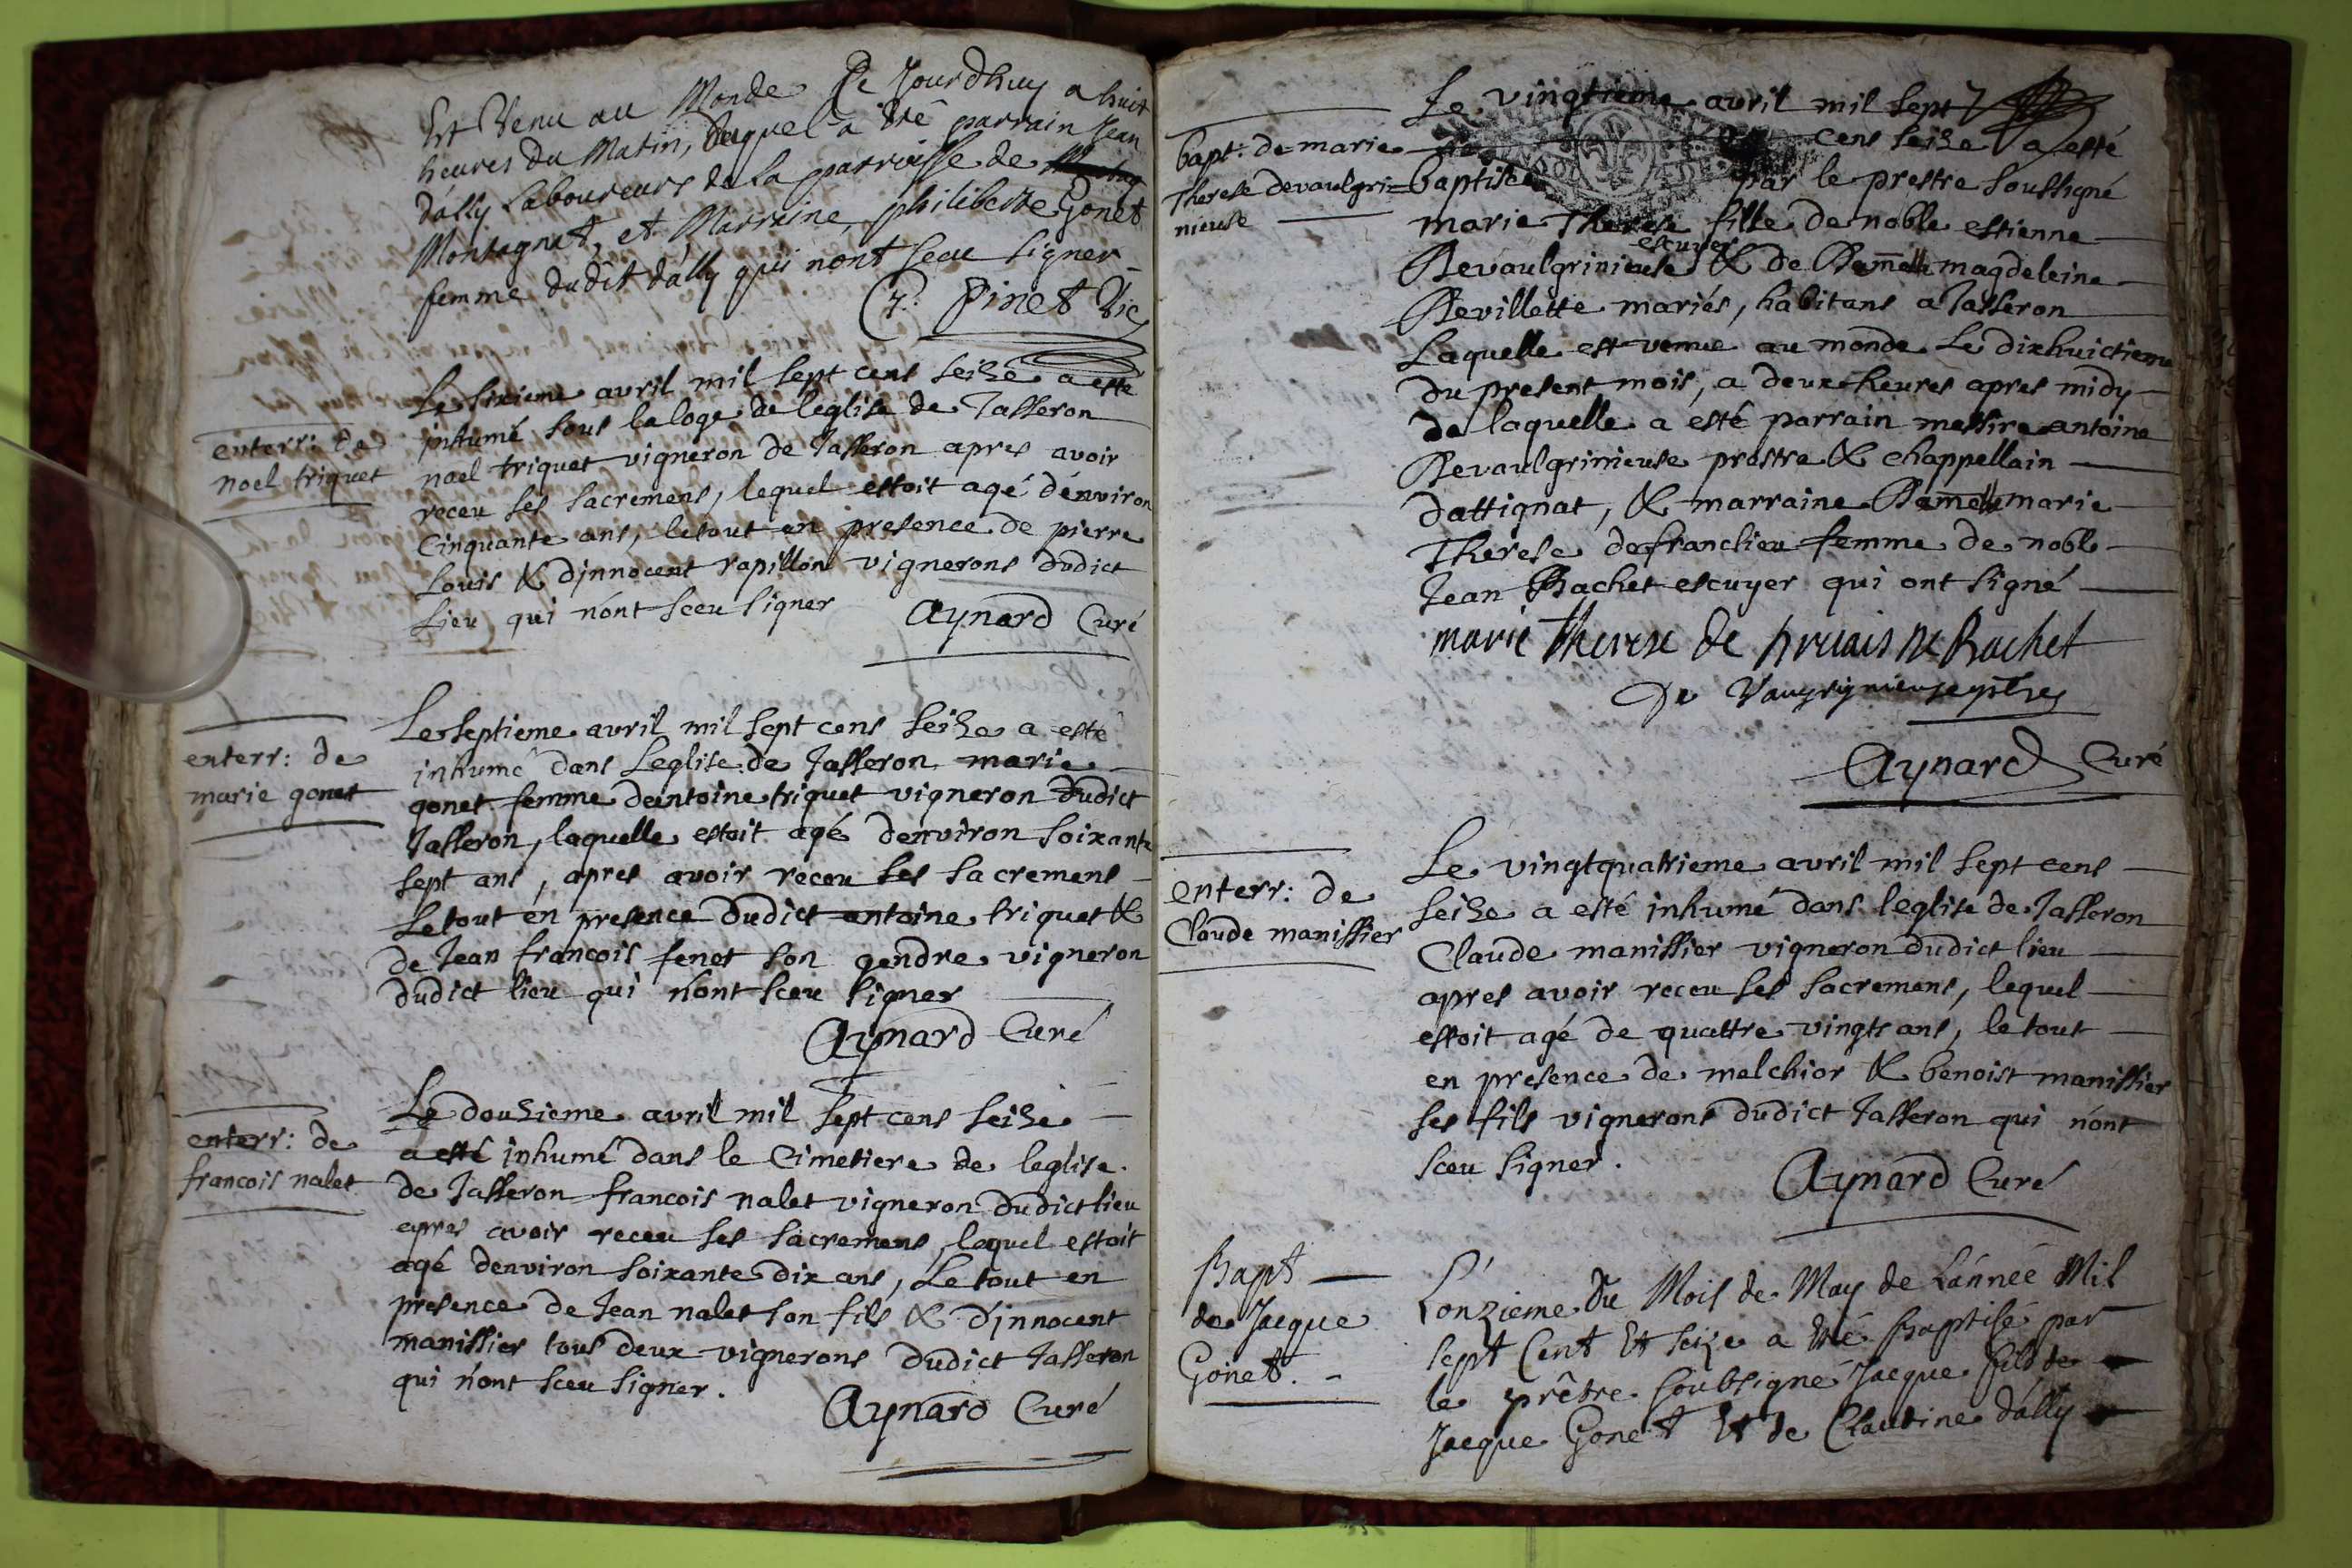 Est Venu au Monde Ce Jourdhuy a huit
heures du Matin, duquel a êtê parrain Jean
dálly Laboureurs de La parroisse de
Montagnat, et Marraine, philiberte Gonet
femme dudit dálly qui nont sceu signer
Pinet Vic
Le sixieme avril mil sept cens seize a esté
enterr: de
noel triquet
inhumé sous la loge de leglise de Jasseron
noel triquet vigneron de Jasseron apres avoir
receu ses sacremens, lequel estoit agé dénviron
Cinquante ans, le tout en presence de pierre
Louis & djnnocent rapillon vignerons dudict
Lieu qui nónt sceu signer
Aynard Curé
Le septieme avril mil sept cens seize a esté
enterr: de
marie gonet
inhumé dans Leglise de Jasseron marie
gonet femme dantoine triquet vigneron dudict
Jasseron, laquelle estoit agé denviron soixante
sept ans, apres avoir receu ses sacremens
Le tout én presence dudict antoine triquet &
de Jean francois fenet son gendre vigneron
dudict lieu qui nónt sceu signer
Aynard Curé
Le douzieme avril mil sept cens seize
enterr: de
francois nalet
a esté inhumé dans le Cimetiere de leglise
de Jasseron francois nalet vigneron dudict lieu
apres avoir receu ses sacremens, lequel estoit
agé denviron soixante dix ans, Le tout en
presence de Jean nalet son fils & djnnocent
manissier tous deux vignerons dudict Jasseron
qui nónt sceu signer.
Aynard Curé
Le vingtieme avril mil sept
cens seize a esté
bapt: de marie
Therese devaulgri=
nieuse
baptisée par le prestre soussigné
marie Therese fille de noble estienne
escuyer
Devaulgrinieuse & de Damelle magdeleine
Devillette mariés, habitans a Jasseron
Laquelle est venue au monde Le dixhuictieme
du present mois, a deux heures apres midy
de laquelle a esté parrain messire antoine
Devaulgrinieuse prestre & chappellain
dattignat, & marraine Damelle marie
Therese defranclieu femme de noble
Jean Bachet escuyer qui ont signé
marie therese de Bachet
De Vaugrignieuse
Aynard Curé
Le vingtquatrieme avril mil sept cens
enterr: de
Claude manissier
seize a esté inhumé dans leglise de Jasseron
Claude manissier vigneron dudict lieu
apres avoir receu ses sacremens, lequel
estoit agé de quattre vingts ans, le tout
en presence de melchior & benoist manissier
ses fils vignerons dudict Jasseron qui nónt
sceu signer.
Aynard Curé
Bapt
de Jacque
Gonet.
L'onzieme du Mois de May de Lánneé Mil
sept Cent Et seize a êté baptisé par
le prêtre soubsigné Jacque fils de
Jacque Gonet Et de Claudine dálly